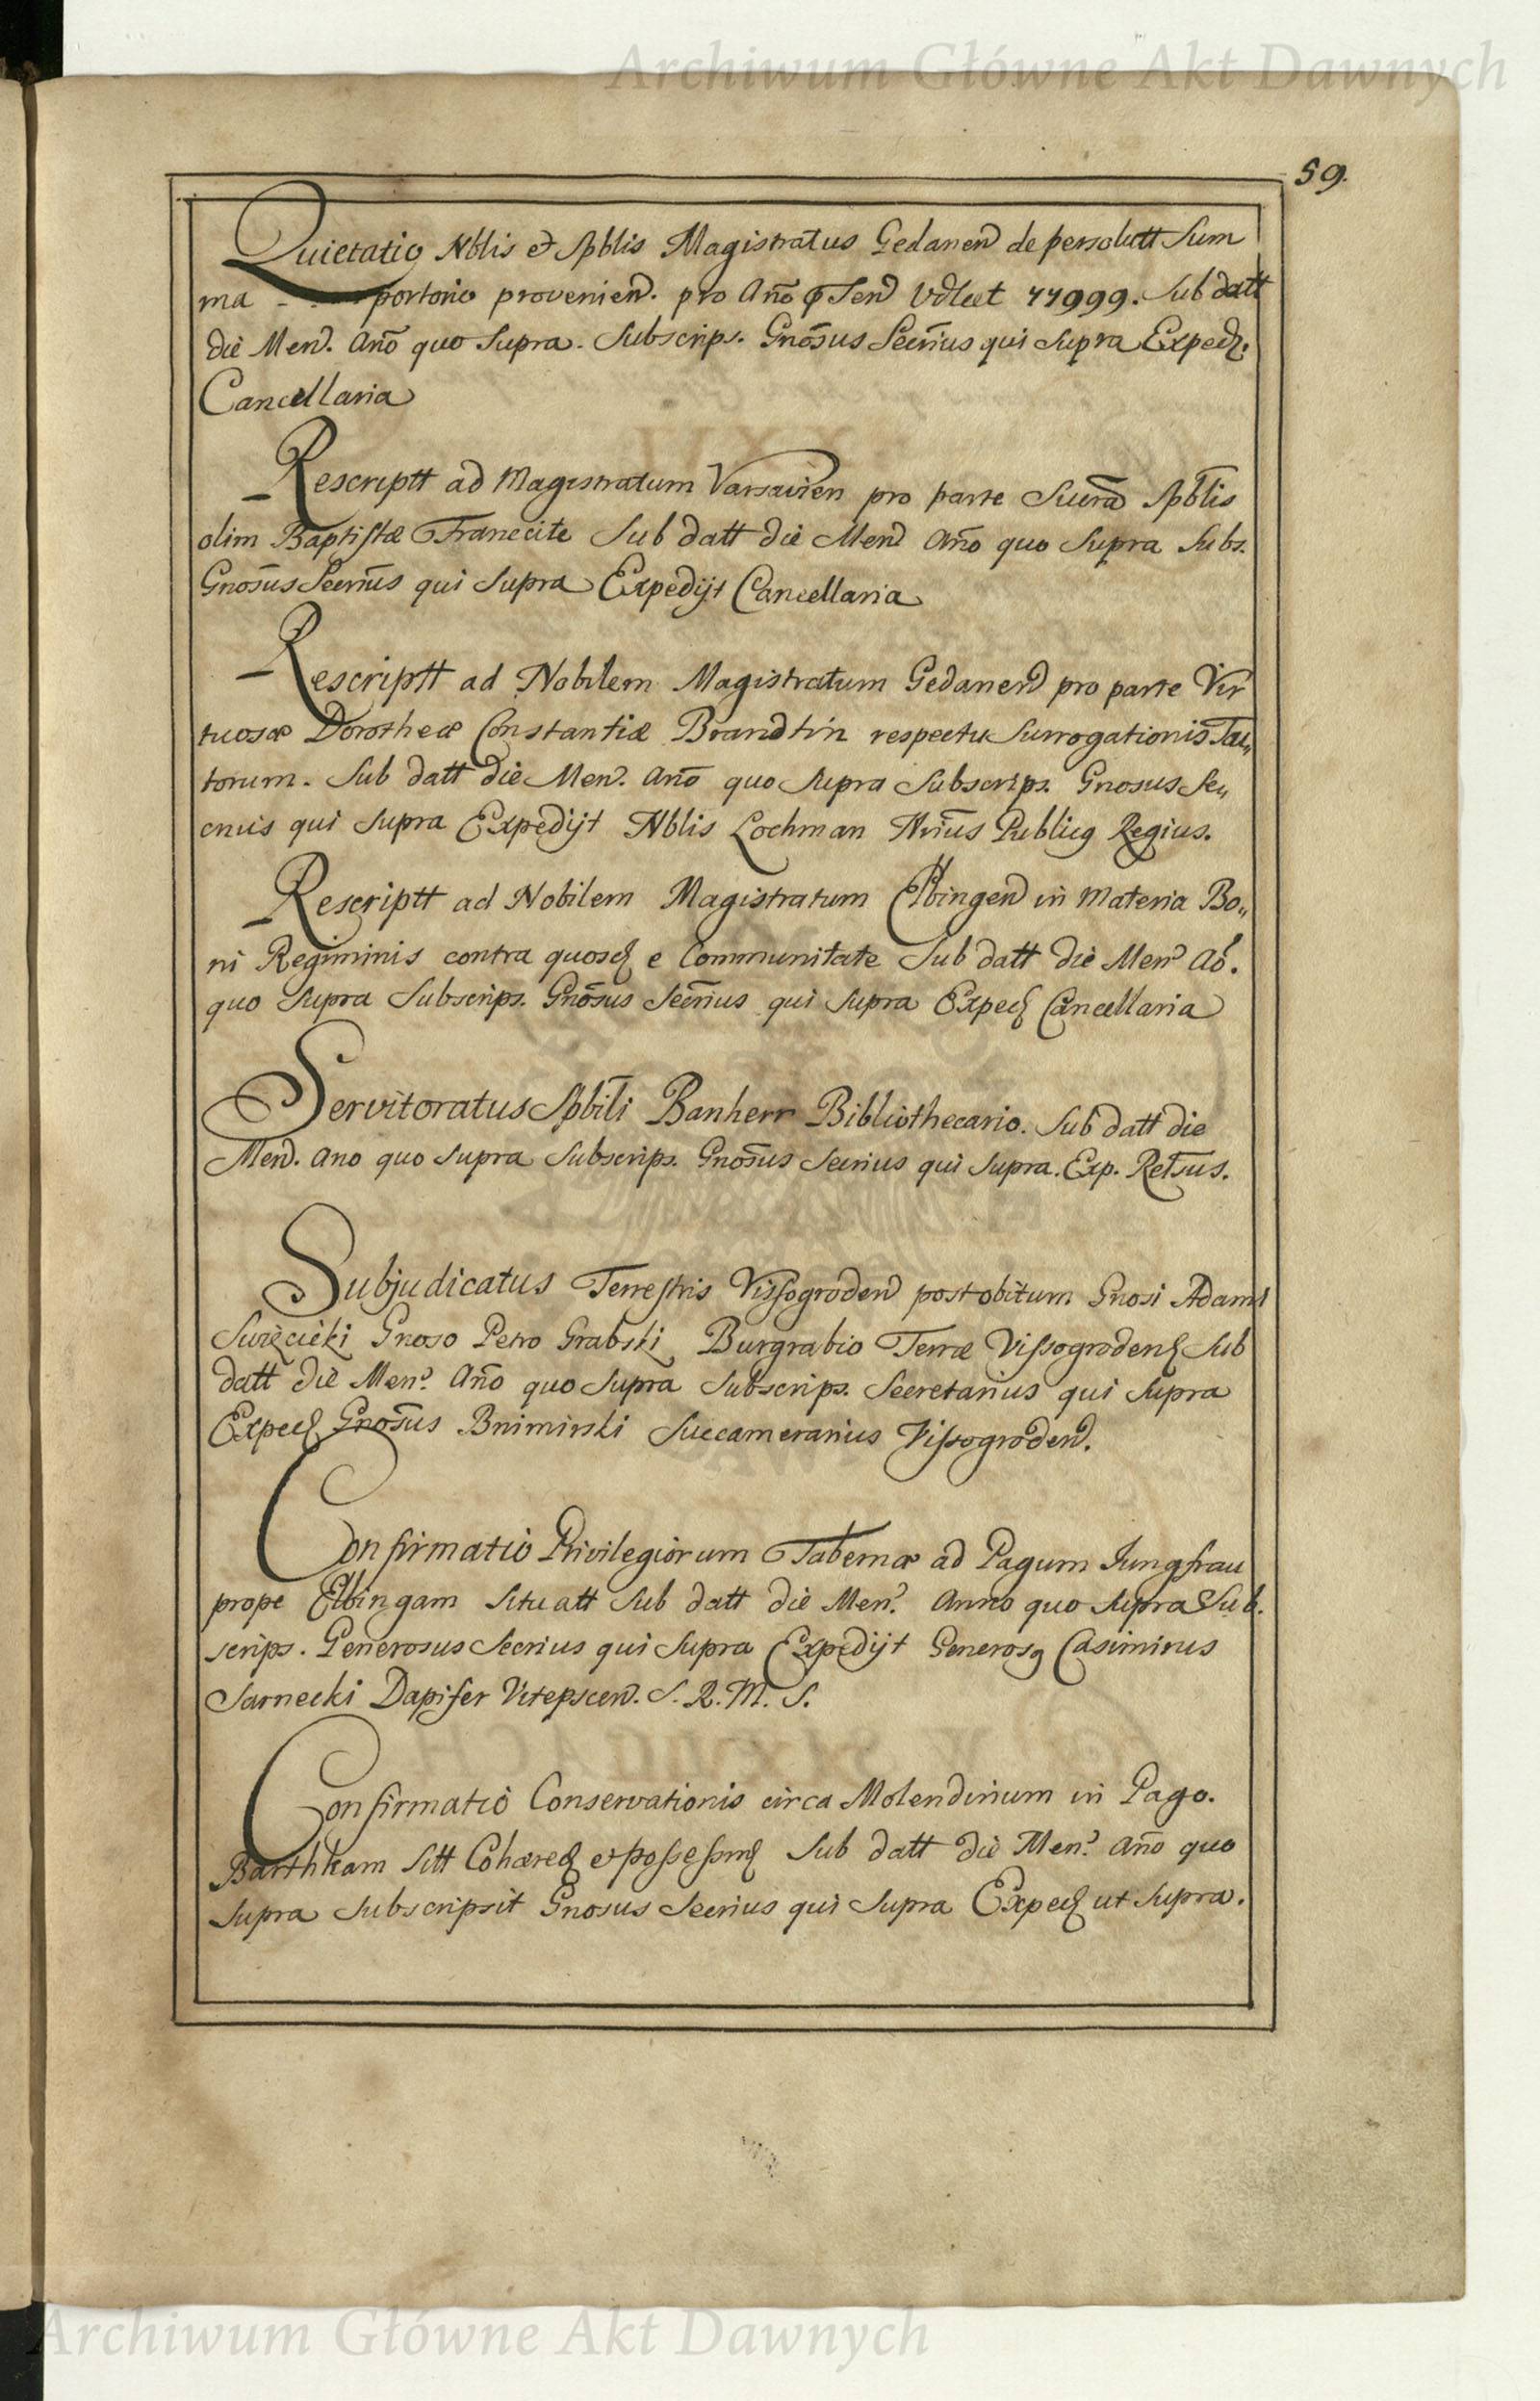 Archiwum Główne Akt Dawnych
59.
Quietatio Nblis et Spblis Magistratus Gedanen de persolutt Sum
ma - portorio provenien. pro Año Sen Vdlect 77999. Sub datt
die Men. Año quo Supra. Subscrips. Gnõsus Secrius qui Supra Exped.
Cancellaria
Rescriptt ad Magistratum Varsavien pro parte Spblis
olim Baptistæ Franecite Sub datt die Men Año quo Supra Subs.
Gnosus Secrius qui Supra Expedijt Cancellaria
Rescriptt ad Nobilem Magistratum Gedanen pro parte Vir
tuosæ Dorotheæ Constantiæ Brandtin respectu Surrogationis Tu„
torum. Sub datt die Men. Año quo Supra Subscrips. Gnosus Se„
crius qui Supra Expedijt Nblis Lochman Nrius Publicq Regius.
Rescriptt ad Nobilem Magistratum Elbingen in Materia Bo„
ni Regiminis contra quosd e Communitate Sub datt die Men Aõ.
quo Supra Subscrips. Gnõsus Secrius qui Supra Exped Cancellaria
Servitoratus Spbili Banherr Bibliothecario. Sub datt die
Men. Ano quo Supra Subscrips. Gnõsus Secrius qui Supra. Exp. Retsus.
Subjudicatus Terrestris Vissogroden post obitum Gnosi Adami
Swięcicki Gnoso Petro Grabski Burgrabio Terræ Vissogroden Sub
datt die Men. Año quo Supra Subscrips. Secretarius qui Supra
Exped Gnosus Bnimirski Succamerarius Vissogroden.
Confirmatio Privilegiorum Tabernæ ad Pagum Jungfrau
prope Elbingam Situatt Sub datt die Men. Anno quo Supra Sub.
scrips. Generosus Secrius qui Supra Expedijt Generosq Casimirus
Sarnecki Dapifer Vitepscen. S. R. M. S.
Confirmatio Conservationis circa Molendinum in Pago.
Barthkam Sitt Cohæred et possessind Sub datt die Men. Año quo
Supra Subscripsit Gnosus Secrius qui Supra Exped ut Supra.
Archiwum Główne Akt Dawnych